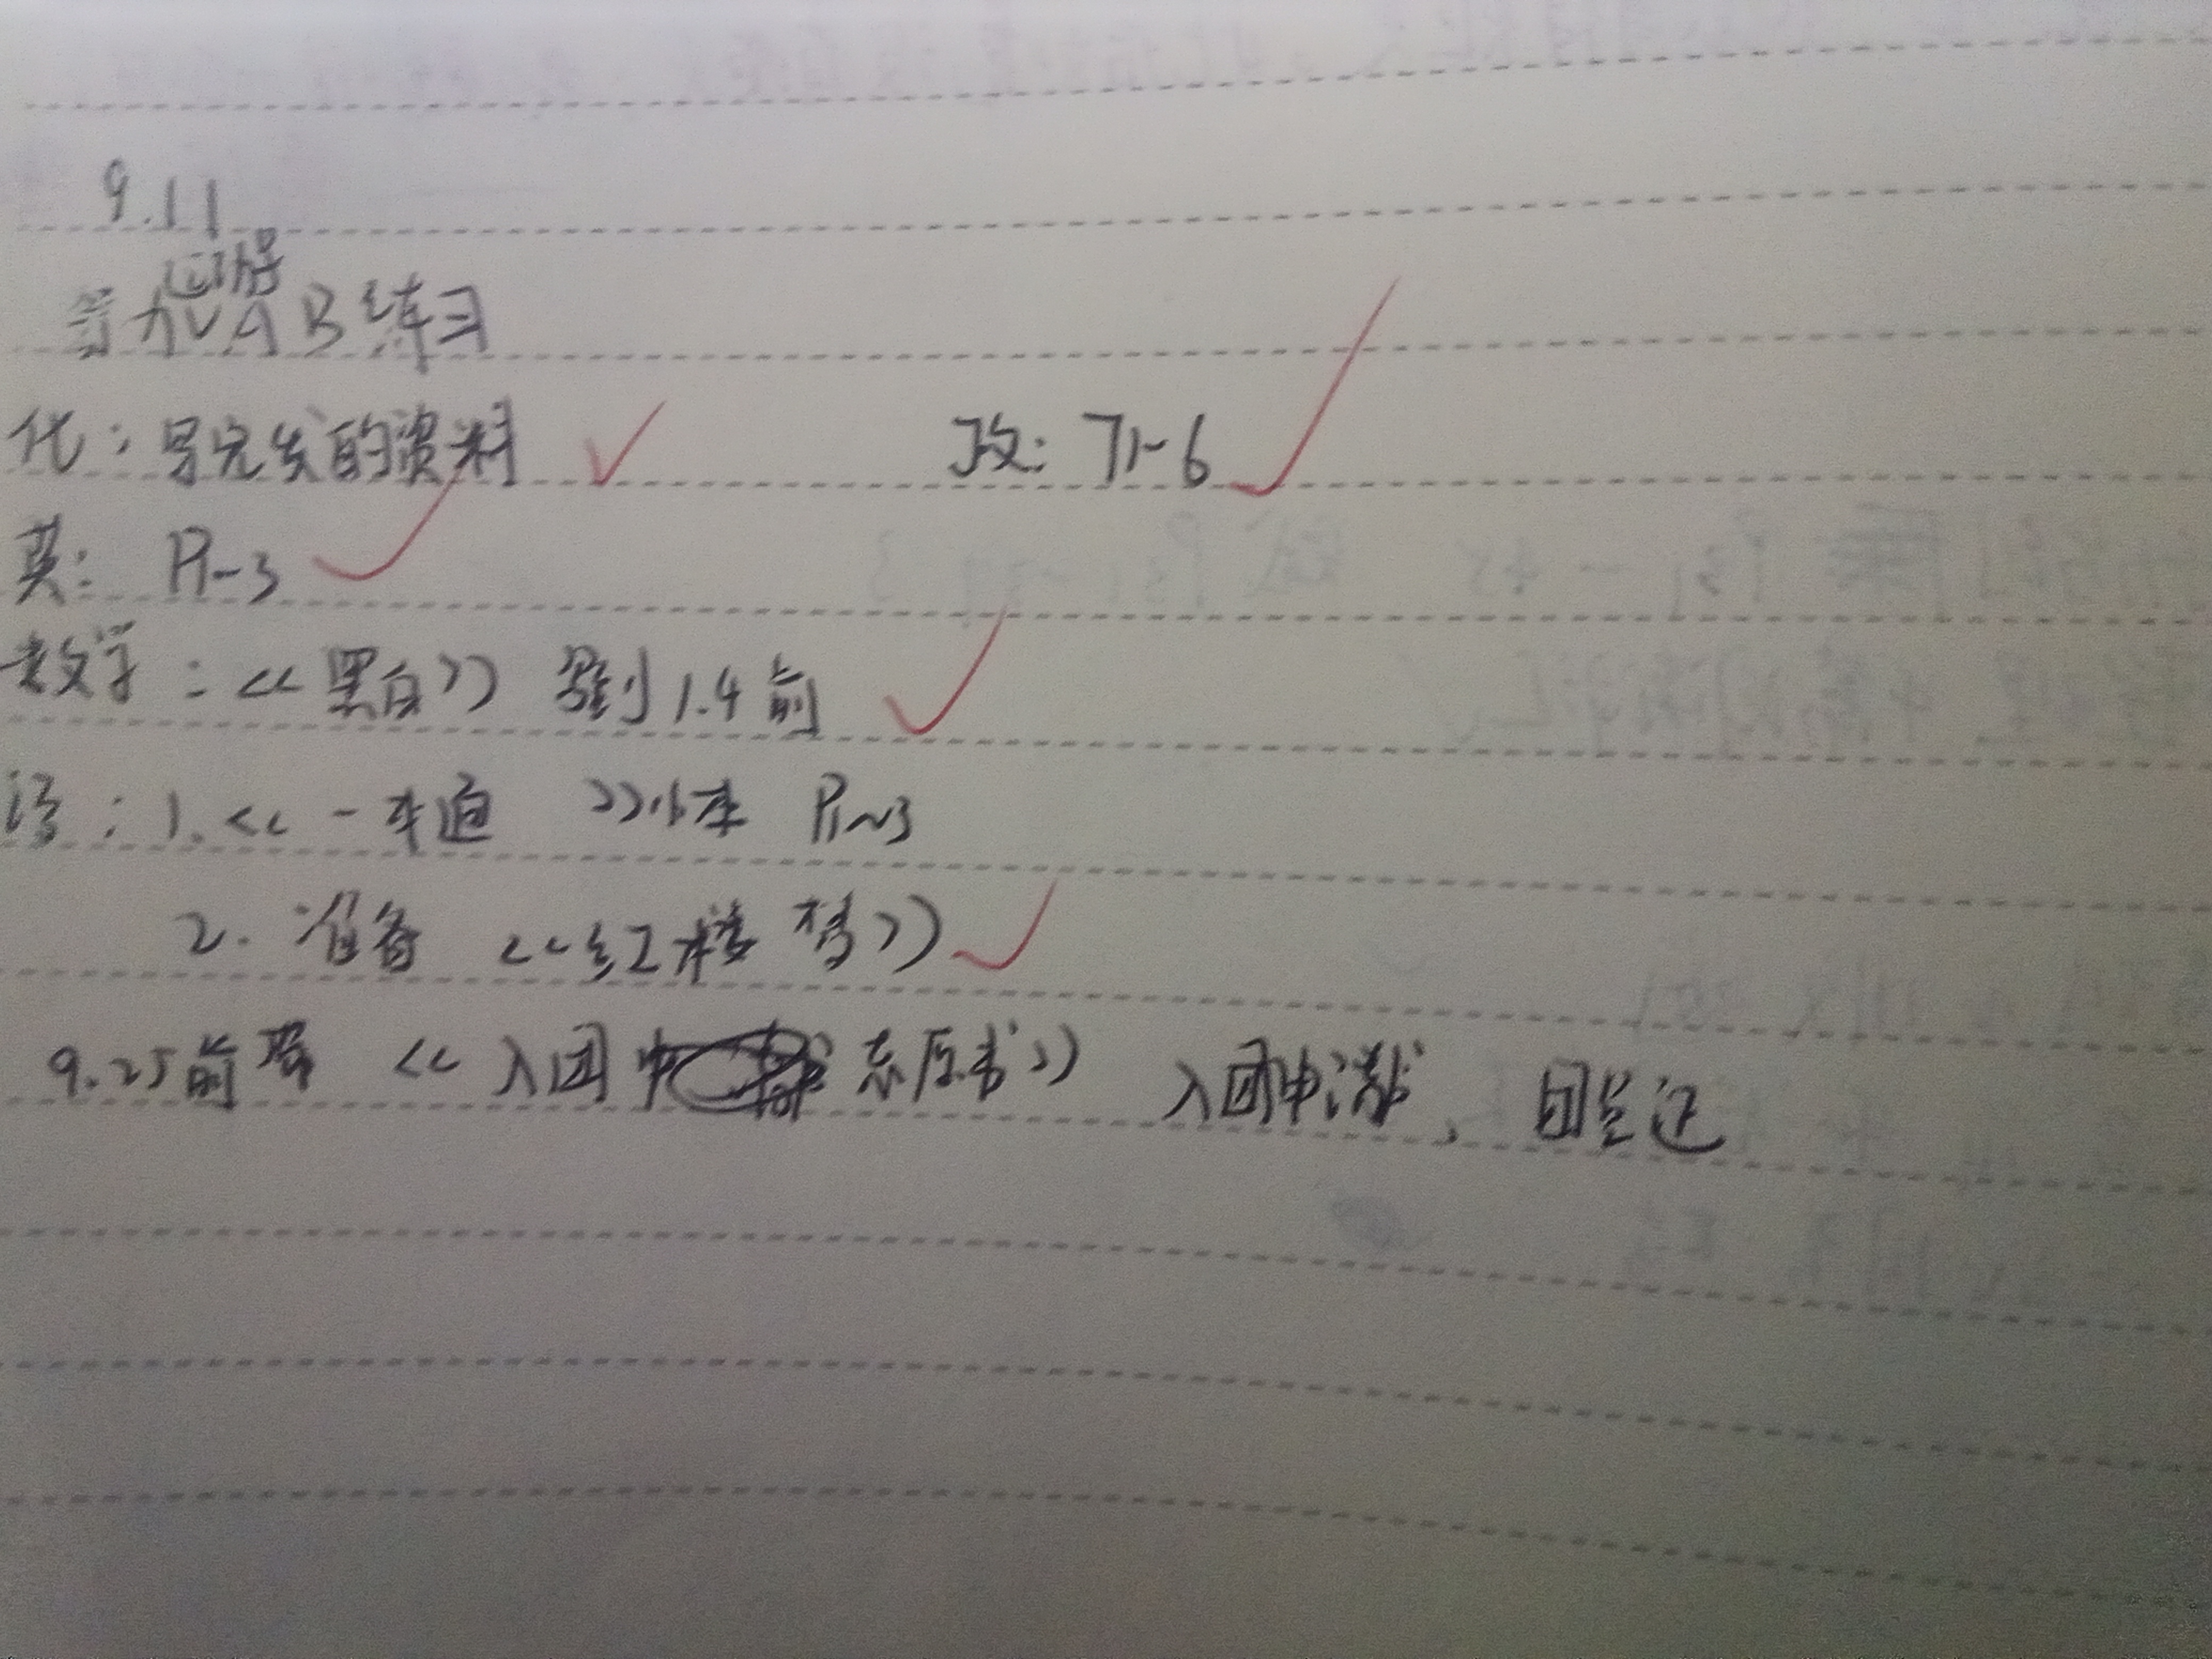 9.11
AB练习
化：写完发的资料 政：T1-6
英： P1-3
数学：<<黑白>> 写到1.4前
语：1.<<一本通 >>小本 P1~3
2. 准备 <<红楼梦>>
9.25前带 <<入团志愿书>> 入团申请书，团